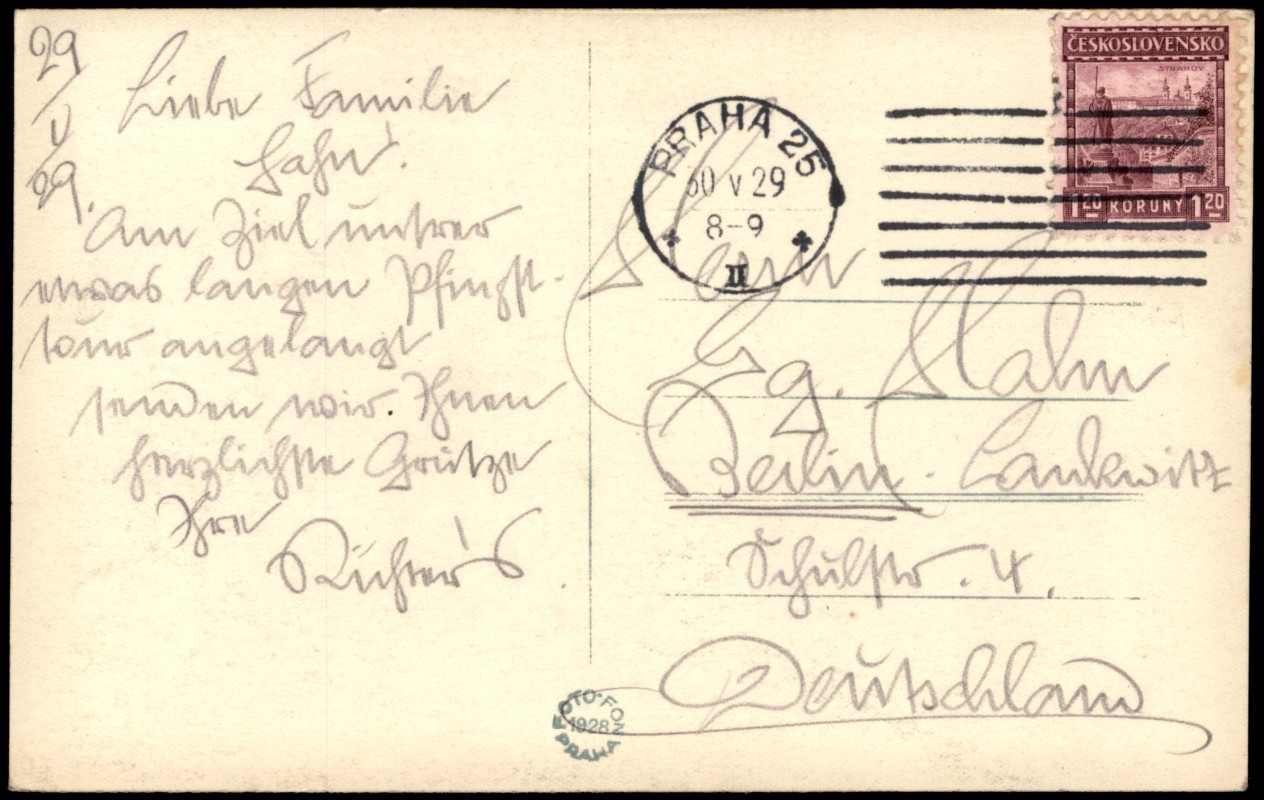 29
/
V
/
29.
Liebe Familie
Hahn!
Am Ziel unsrer
etwas langen Pfingst-
tour angelangt
senden wir Ihnen
herzlichste Grütze
Ihre
Richter's
PRAHA 25
30 V 29
8-9
II
ČESKOSLOVENSKO
STRAHOV
1 20 KORUNY 1 20
Herrn
Hahn
Berlin-Lankwitz
Schulstr. 4.
Deutschland
FOTO-FON
1928
PRAHA